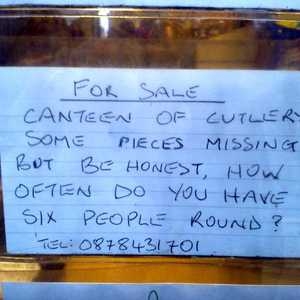 FOR SALE
CANTEEN OF CUTLERY
SOME PIECES MISSING
BUT BE HONEST, HOW
OFTEN DO YOU HAVE
SIX PEOPLE ROUND?
TEL: 0878431701